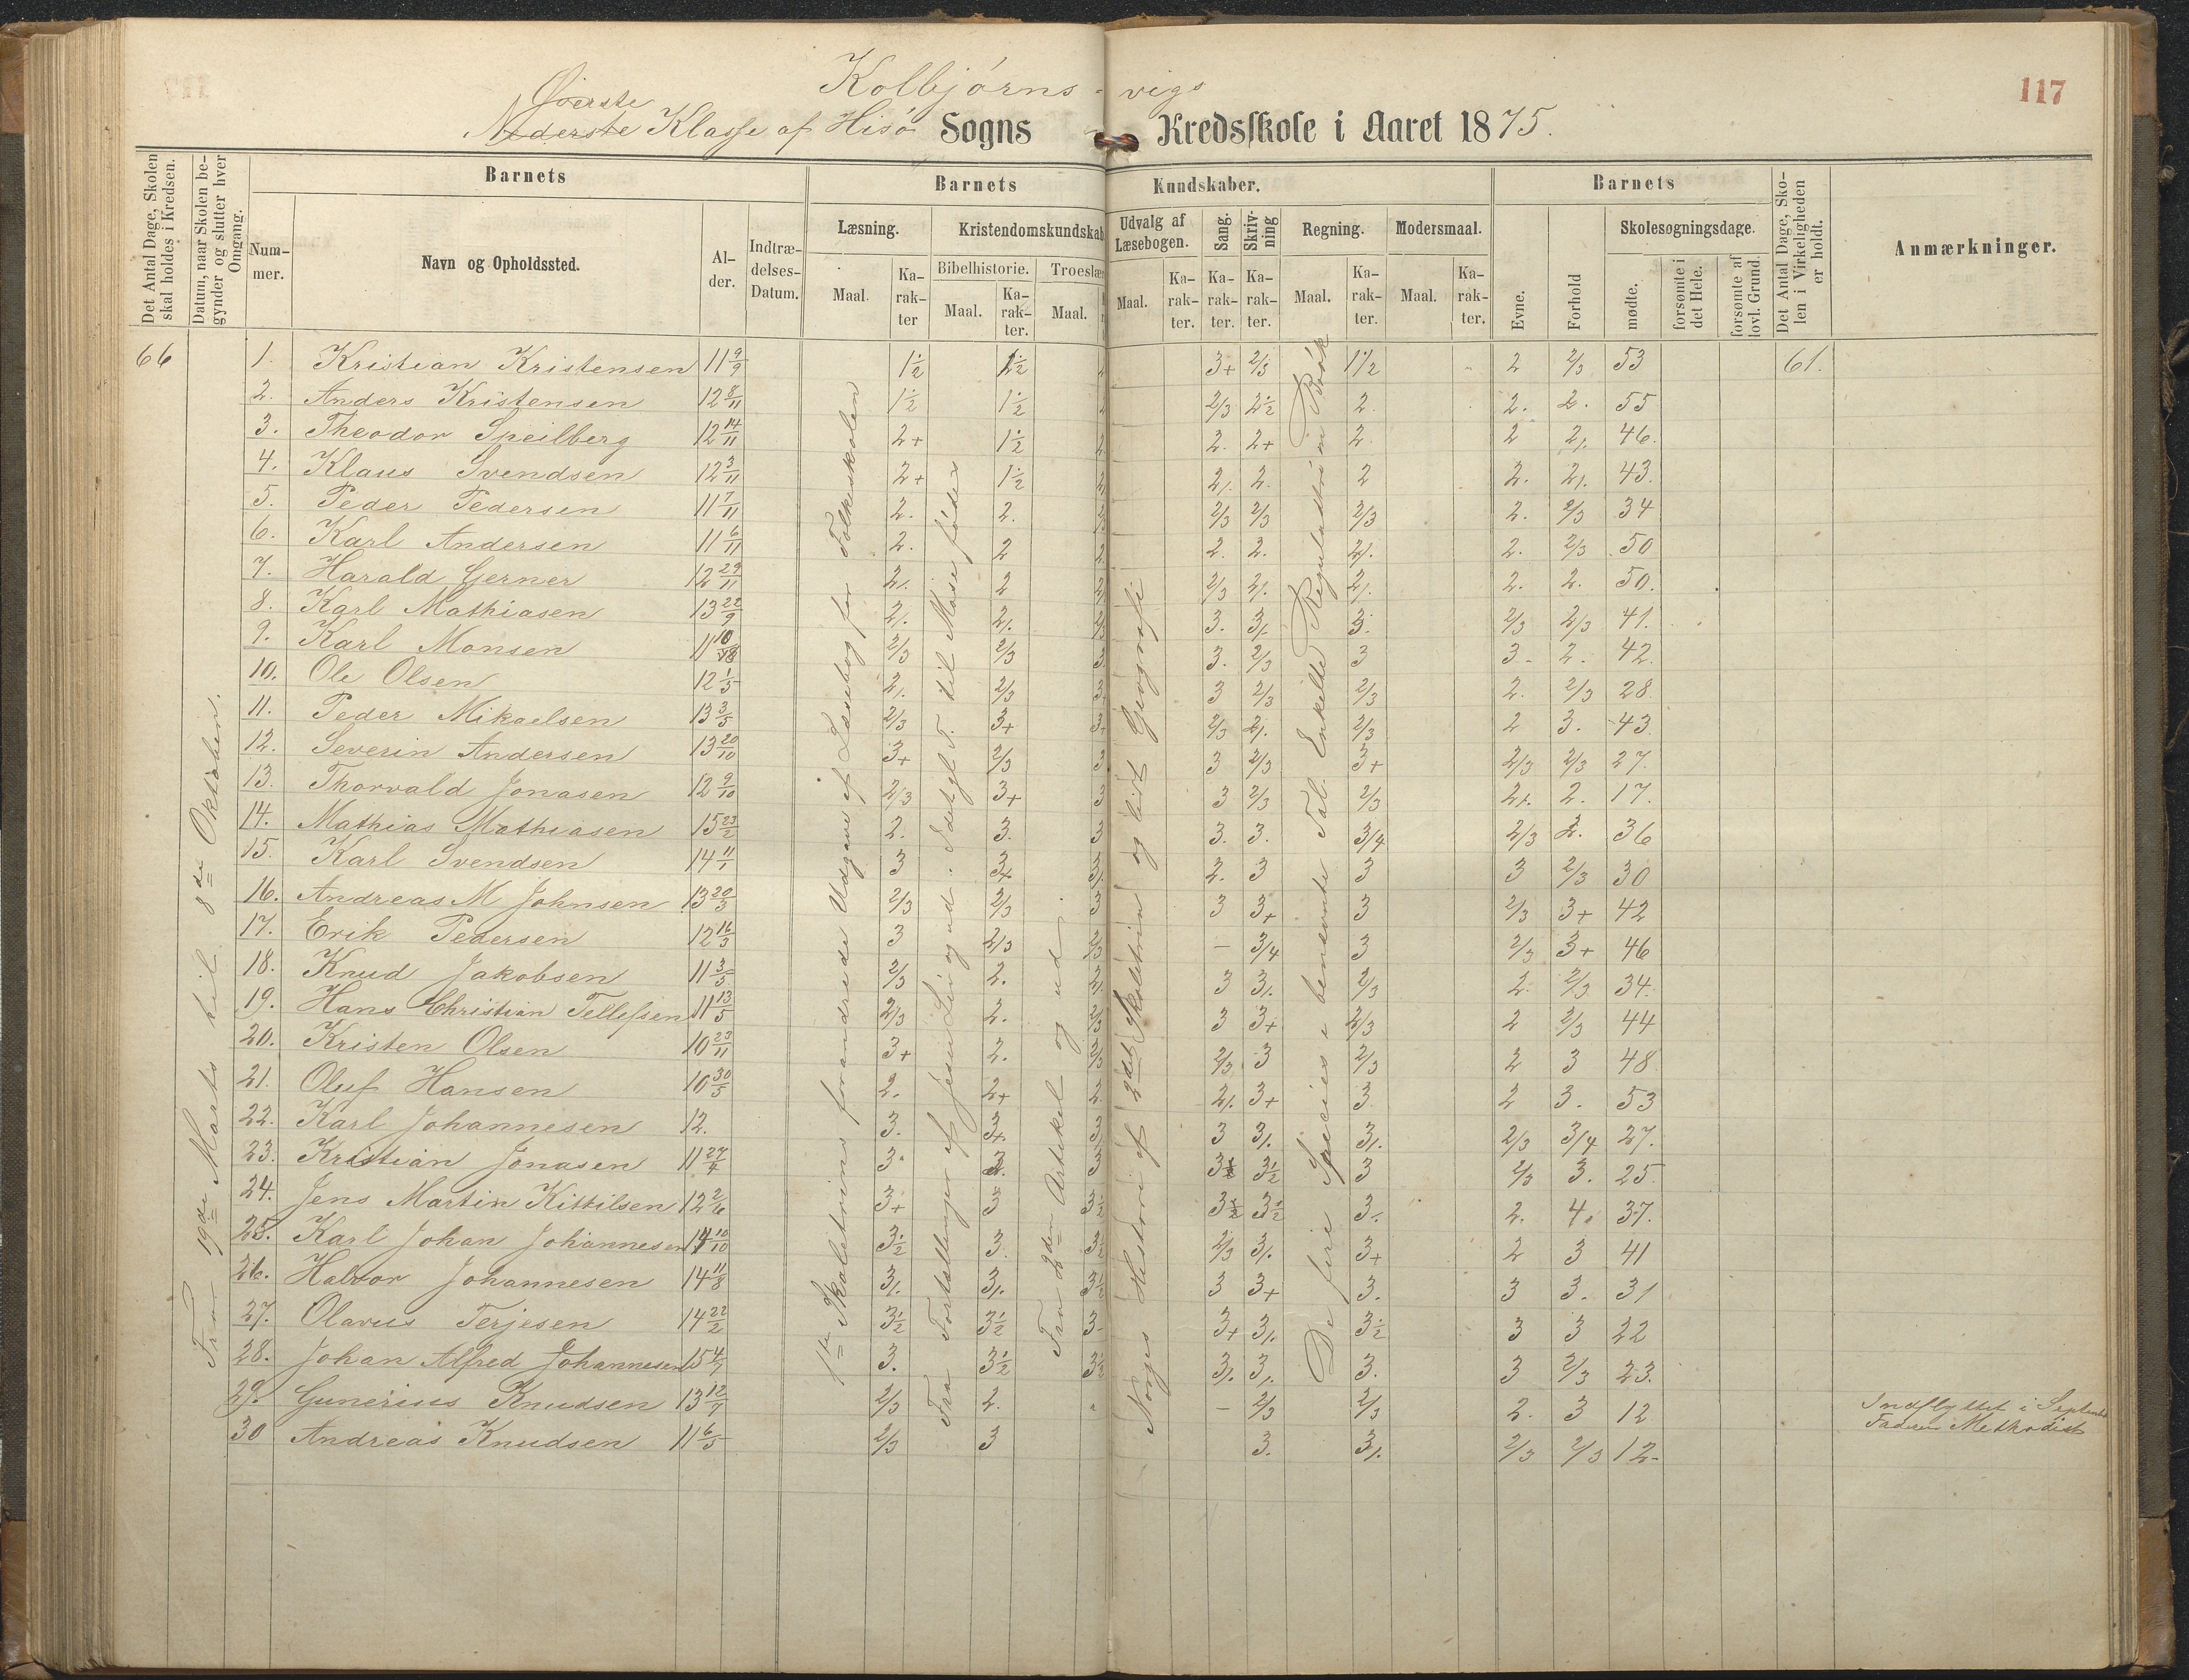 117
Kolbjørns - vigs
Øverste
Nederste Klasse af Hisø Sogns Kredsskole i Aaret 1875.
Det Antal Dage, Skolen skal holdes i Kredsen.
Datum, naar Skolen begynder og slutter hver Omgang.
Barnets
Nummer.
Navn og Opholdssted.
Alder.
Indtrædelses-Datum.
Barnets Kundskaber.
Læsning.
Maal.
Karakter
Kristendomskundskab
Bibelhistorie.
Maal.
Karakter.
Troeslæ
Maal.
Udvalg af Læsebogen.
Maal.
Karakter.
Sang.
Karakter.
Skrivning
Karakter.
Regning.
Maal.
Karakter.
Modersmaal.
Maal.
Karakter.
Barnets
Evne.
Forhold
Skolesøgningsdage.
mødte.
forsømte i det Hele.
forsømte af lovl. Grund.
Det Antal Dage, Skolen i Virkeligheden er holdt.
Anmærkninger.
66
Fra 19de Marts til 8de Oktober.
1ste Skoletrins forandrede Udgave af Læsebog for Folkeskolen
Fra Fortællinger af Jesu Liv og ud. Ideligt F. til Mose født
Fra 2den Artikel og ud.
Norges Historie af 2det Skoletrin og lidt Geografi
De fire Species i benævnte Tal. Enkelte Reguladetri in Brøk
1. Kristian Kristensen 11 9/9 1½ 1½ 3+ 2/3 1½ 2 2/3 53 61.
2. Anders Kristensen 12 8/11 1½ 1½ 2/3 2½ 2. 2. 2. 55
3. Theodor Speilberg 12 14/11 2+ 1½ 2. 2+ 2. 2 2/. 46.
4. Klaus Svendsen 12 3/11 2+ 1½ 2/. 2. 2 2. 2/. 43.
5. Peder Pedersen 11 7/11 2. 2. 2/3 2/3 2/3 2. 2/3 34
6. Karl Andersen 11 6/11 2. 2 2. 2. 2/. 2. 2/3 50
7. Harald Gerner 12 29/11 2/. 2 2/3 2/. 2/. 2. 2. 50.
8. Karl Mathiasen 13 22/9 2/. 2/. 3. 3/. 3. 2/3 2/3 41.
9. Karl Monsen 11 2/3 2/3 3. 2/3 3 3. 2. 42.
10. Ole Olsen 12 1/5 2/. 2/3 3 2/3 2/3 2. 2/3 28.
11. Peder Mikaelsen 13 3/5 2/3 3+ 2/3 2/. 2/3 2 3. 43.
12. Severin Andersen 13 20/10 3+ 2/3 3 2/3 3+ 2/3 2/3 27.
13. Thorvald Jonasen 12 9/10 2/3 3+ 3 2/3 2/3 2/. 2. 17.
14. Mathias Mathiasen 15 23/2 2. 3. 3. 3. 3/4 2/3 2. 36
15. Karl Svendsen 14 11/1 3 3+ 2. 3 3 3 2/3 30
16. Andreas M Johnsen 13 20/3 2/3 2/3 3 3+ 3 2/3 3+ 42
17. Erik Pedersen 12 16/3 3 2/3 – 3/4 3 2/3 3+ 46
18. Knud Jakobsen 11 3/5 2/3 2. 3 3/. 2/3 2. 2/3 34.
19. Hans Christian Tellefsen 11 13/5 2/3 2. 3 3+ 2/3 2 2/3 44
20. Kristen Olsen 10 23/11 3+ 2. 2/3 3 2/3 2 3 48.
21. Oluf Hansen 10 30/5 2. 2+ 2/. 3+ 3 2 3. 53
22. Karl Johannesen 12. 3. 3+ 3 3/. 3/. 2/3 3/4 27.
23. Kristian Jonasen 11 27/4 3. 3. 3½ 3½ 3 2/3 3. 25.
24. Jens Martin Kittilsen 12 2/6 3+ 3 3½ 3½ 3/. 2. 4. 37.
25. Karl Johan Johannesen 14 10/10 3½ 3. 2/3 3/. 3+ 2 3 41
26. Halvor Johannesen 14 11/8 3/. 3/. 3 3+ 3. 3 3. 31
27. Olavus Terjesen 14 22/2 3½ 3½ 3+ 3/. 3½ 3 3 22
28. Johan Alfred Johannesen 15 4/7 3. 3½ 3/. 3/. 3. 3 2/3 23.
29. Gunerius Knudsen 13 12/7 2/3 2. – 2/3 2/3 2. 3 12 Indflyttet i Septemb
30 Andreas Knudsen 11 6/5 2/3 3 3. 3/. 2/3 2/3 12. Faderen Methodist